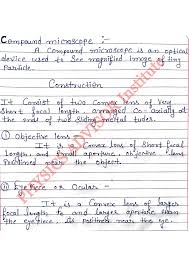 Compound microscope :-
A Compound microscope is an optical
device used to see magnified image of tiny
Particle.
Construction
It Consist of two Convex lens of Very
Short focal length, arranged Co-axially at
the end of two sliding metal tubes.
(i) Objective lens :-
It is a Convex lens of Short focal
length, and small aperture, objective lens
Positioned near the object.
(ii) Eyepiece or Ocular -
It is a Convex lens of larger
focal length, to and larger aperture than
the eyepiece is positioned near the eye.
PHYSICS ADVENTURE Institute